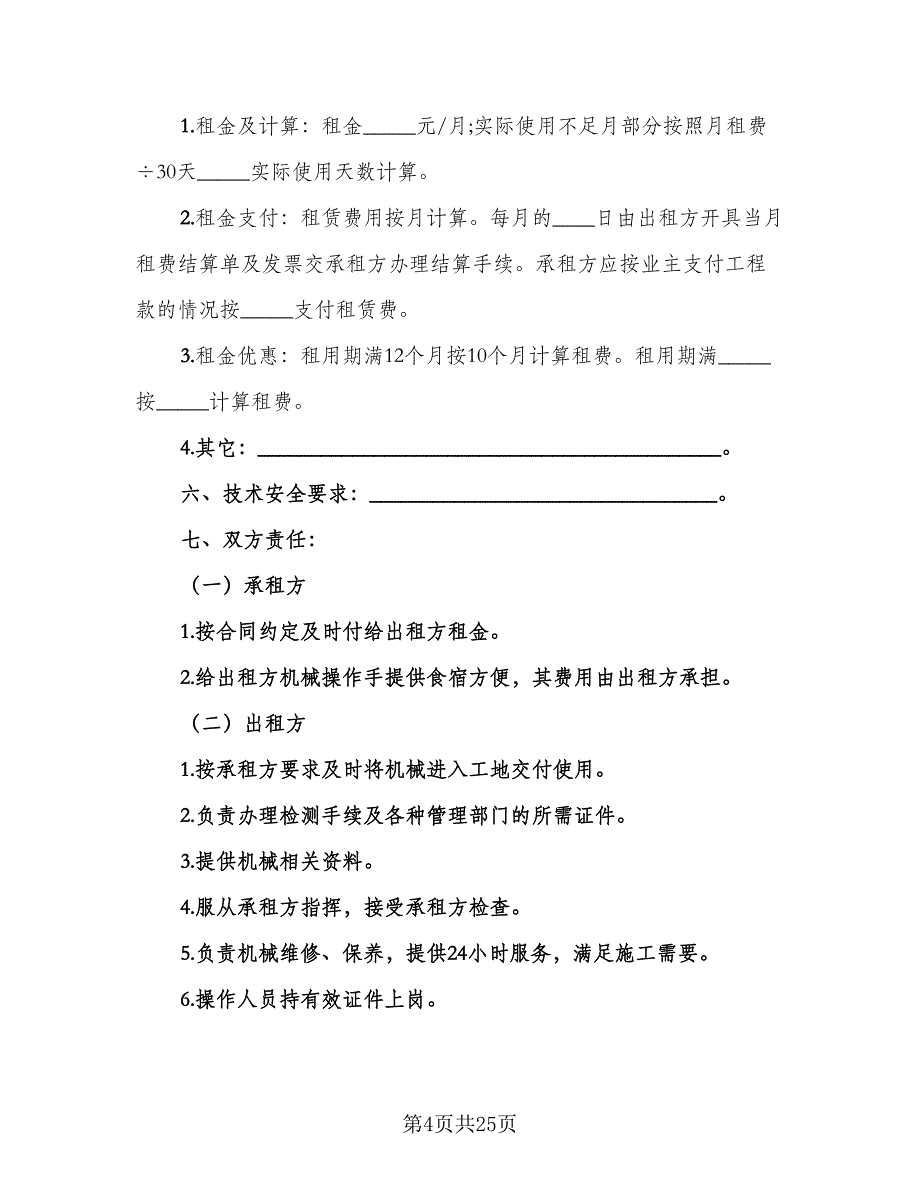 1.租金及计算：租金_____元/月;实际使用不足月部分按照月租费
÷30天_____实际使用天数计算。
2.租金支付：租赁费用按月计算。每月的____日由出租方开具当月
租费结算单及发票交承租方办理结算手续。承租方应按业主支付工程
款的情况按_____支付租赁费。
3.租金优惠：租用期满12个月按10个月计算租费。租用期满_____
按_____计算租费。
4.其它：____________________________________________。
六、技术安全要求：_________________________________。
七、双方责任：
（一）承租方
1.按合同约定及时付给出租方租金。
2.给出租方机械操作手提供食宿方便，其费用由出租方承担。
（二）出租方
1.按承租方要求及时将机械进入工地交付使用。
2.负责办理检测手续及各种管理部门的所需证件。
3.提供机械相关资料。
4.服从承租方指挥，接受承租方检查。
5.负责机械维修、保养，提供24小时服务，满足施工需要。
6.操作人员持有效证件上岗。
第4页共25页